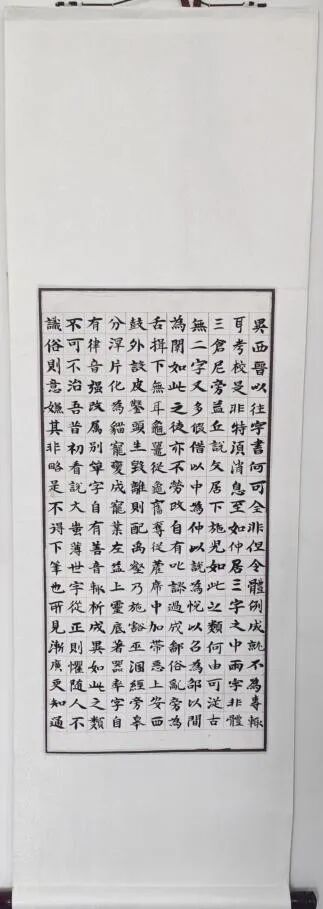 吳西晋以往字書何可全非但令體例成就不為專輒
耳考校是非特須消息至如仲居三字之中兩字非體
三倉尼旁益丘說文居下施児如此之類何由可従古
無二字又多假借以中為仲以說為悅以召為邵以間
為閑如此之徒亦不勞改自有訛謬過成鄙俗亂旁為
舌揖下無耳黿鼉從龜奮奪從席中加帶惡上安西
鼓外設皮鑿頭生毀離則配禹壑乃施豁巫混經旁皋
分浮片化為貓寵變成寵業左益上靈底著器率字自
有律音強改属別單字自有善音輒析成異如此之類
不可不治吾昔初看說文蚩薄世字從正則懼隨人不
識俗則意嫌其非略是不得下筆也所見漸廣更知通